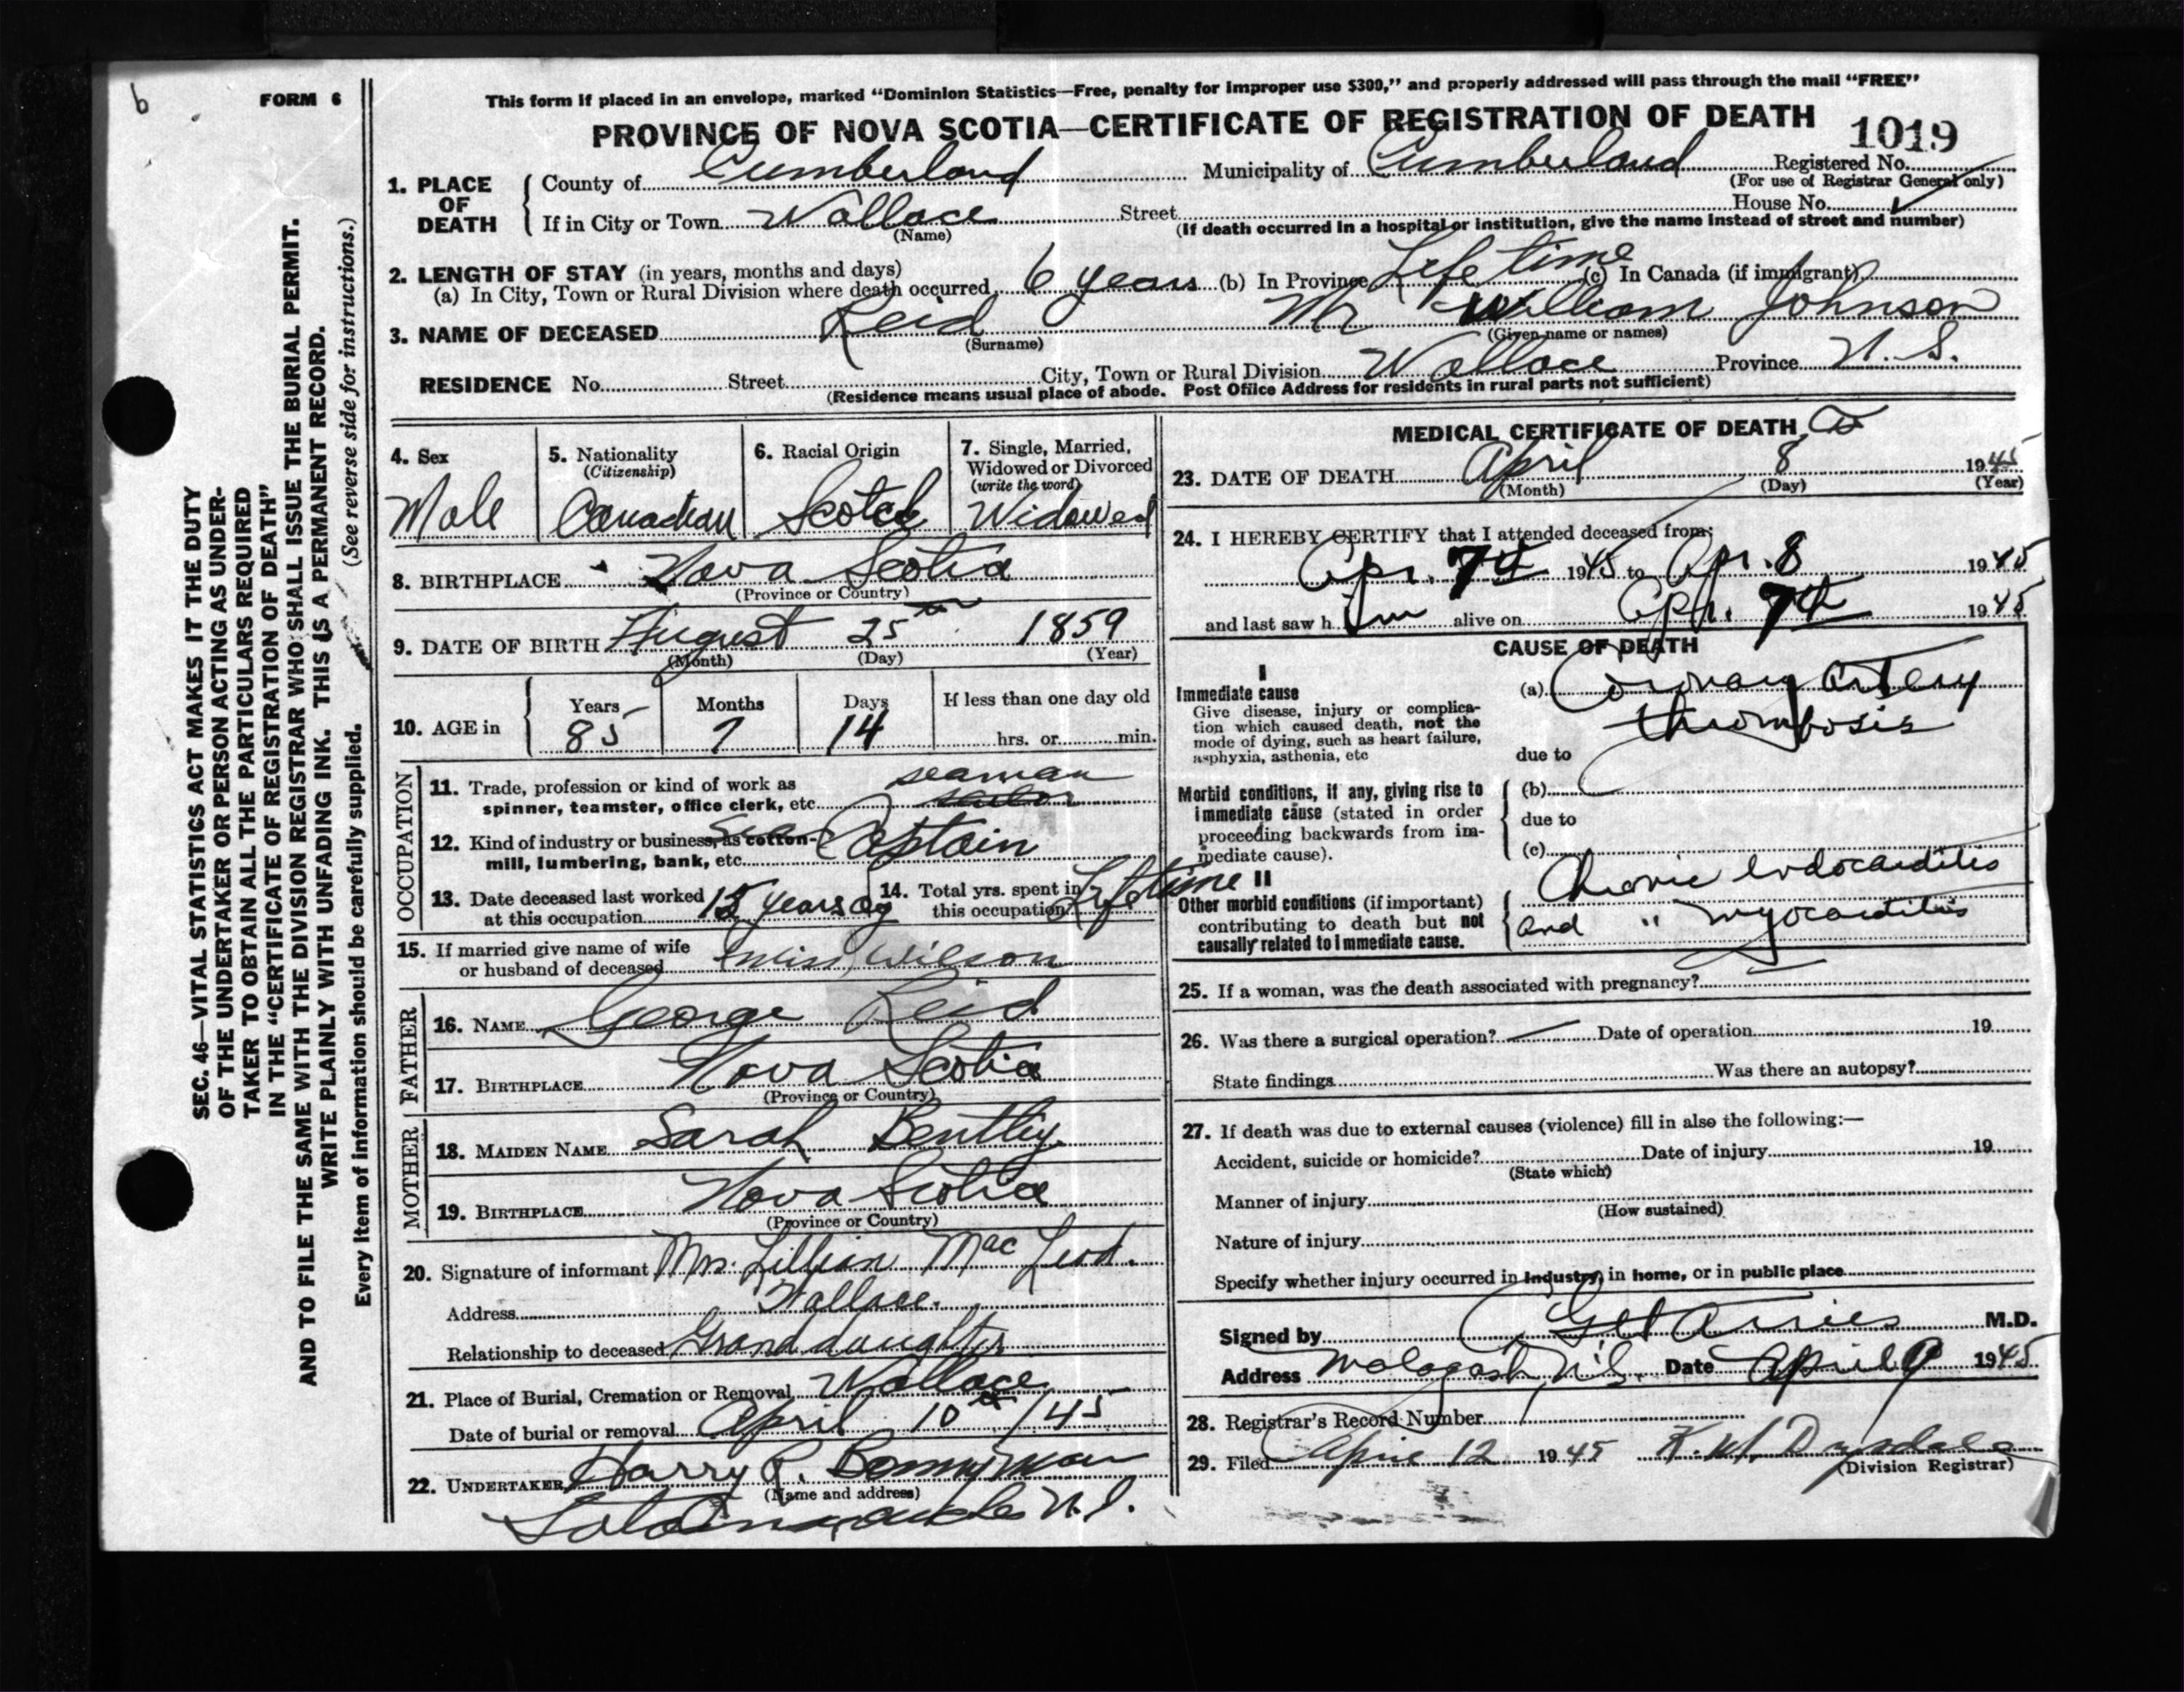 b
FORM 6
This form if placed in an envelope, marked “Dominion Statistics—Free, penalty for improper use $300,” and properly addressed will pass through the mail “FREE”
PROVINCE OF NOVA SCOTIA—CERTIFICATE OF REGISTRATION OF DEATH
1019
Registered No.
(For use of Registrar General only)
1. PLACE OF DEATH
County of Cumberland Municipality of Cumberland
If in City or Town Wallace Street House No.
(Name) (If death occurred in a hospital or institution, give the name instead of street and number)
2. LENGTH OF STAY (in years, months and days)
(a) In City, Town or Rural Division where death occurred 6 years (b) In Province Life time (c) In Canada (if immigrant)
3. NAME OF DECEASED Reid Mr William Johnson
(Surname) (Given name or names)
RESIDENCE No. Street City, Town or Rural Division Wallace Province N. S.
(Residence means usual place of abode. Post Office Address for residents in rural parts not sufficient)
4. Sex
Male
5. Nationality
(Citizenship)
Canadian
6. Racial Origin
Scotch
7. Single, Married, Widowed or Divorced
(write the word)
Widowed
8. BIRTHPLACE Nova Scotia
(Province or Country)
9. DATE OF BIRTH August 25th 1859
(Month) (Day) (Year)
10. AGE in
Years Months Days If less than one day old
85 7 14 hrs. or min.
OCCUPATION
11. Trade, profession or kind of work as
spinner, teamster, office clerk, etc. seaman
sailor
12. Kind of industry or business, as cotton-
mill, lumbering, bank, etc. Sea Captain
13. Date deceased last worked
at this occupation 15 years ag
14. Total yrs. spent in
this occupation Lifetime
15. If married give name of wife
or husband of deceased Miss Wilson
FATHER
16. NAME George Reid
17. BIRTHPLACE Nova Scotia
(Province or Country)
MOTHER
18. MAIDEN NAME Sarah Bentley
19. BIRTHPLACE Nova Scotia
(Province or Country)
20. Signature of informant Mrs. Lillian Mac Leod.
Address Wallace.
Relationship to deceased Grand daughter
21. Place of Burial, Cremation or Removal Wallace
Date of burial or removal April 10th/45
22. UNDERTAKER Harry R. Bonnyman
(Name and address)
N.S.
MEDICAL CERTIFICATE OF DEATH
23. DATE OF DEATH April 8 1945
(Month) (Day) (Year)
24. I HEREBY CERTIFY that I attended deceased from:
Apr. 7th 1945 to Apr. 8 1945
and last saw h im alive on Apr. 7th 1945
CAUSE OF DEATH
I
Immediate cause
Give disease, injury or complica-
tion which caused death, not the
mode of dying, such as heart failure,
asphyxia, asthenia, etc
(a) Coronary artery
thrombosis
due to
Morbid conditions, if any, giving rise to
immediate cause (stated in order
proceeding backwards from im-
mediate cause).
(b)
due to
(c)
II
Other morbid conditions (if important)
contributing to death but not
causally related to immediate cause.
Chronic endocarditis
and " myocarditis
25. If a woman, was the death associated with pregnancy?
26. Was there a surgical operation? Date of operation 19
State findings Was there an autopsy?
27. If death was due to external causes (violence) fill in also the following:—
Accident, suicide or homicide? Date of injury 19
(State which)
Manner of injury
(How sustained)
Nature of injury
Specify whether injury occurred in industry, in home, or in public place
Signed by M.D.
Address Malagash, N.S. Date April 9 1945
28. Registrar's Record Number
29. Filed April 12 1945 K. W. Drysdale
(Division Registrar)
SEC. 46—VITAL STATISTICS ACT MAKES IT THE DUTY
OF THE UNDERTAKER OR PERSON ACTING AS UNDER-
TAKER TO OBTAIN ALL THE PARTICULARS REQUIRED
IN THE “CERTIFICATE OF REGISTRATION OF DEATH”
AND TO FILE THE SAME WITH THE DIVISION REGISTRAR WHO SHALL ISSUE THE BURIAL PERMIT.
WRITE PLAINLY WITH UNFADING INK. THIS IS A PERMANENT RECORD.
(See reverse side for instructions.)
Every item of information should be carefully supplied.